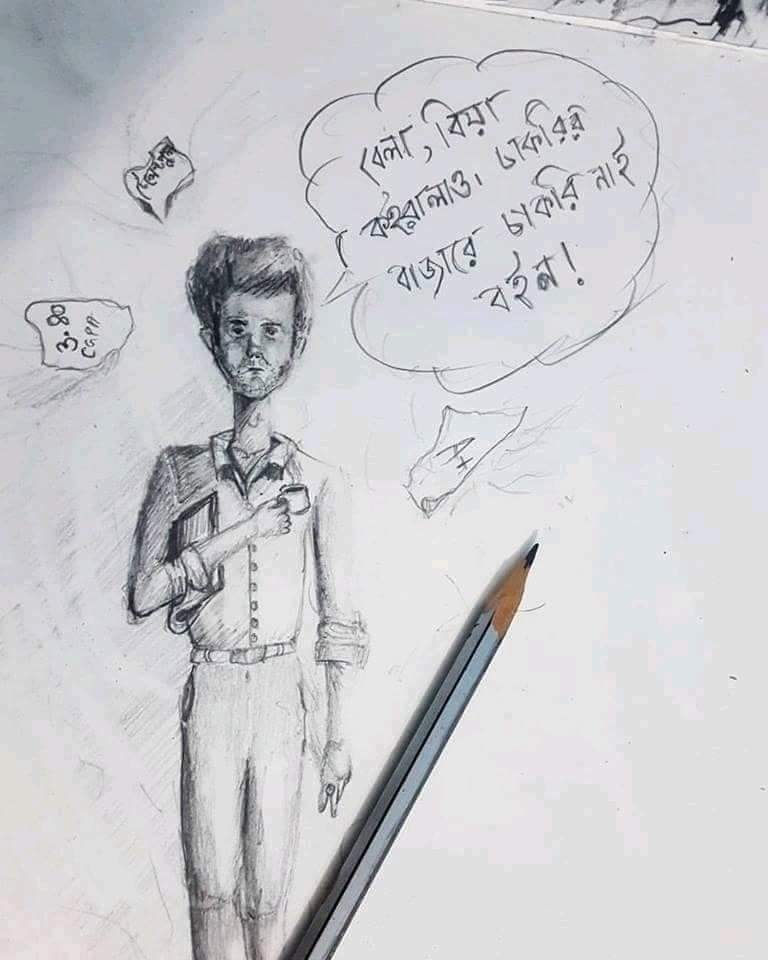 বেলা, বিয়া
কইরালাও। চাকরির
বাজারে চাকরি নাই
বইন!
3.80
CGPA
A+